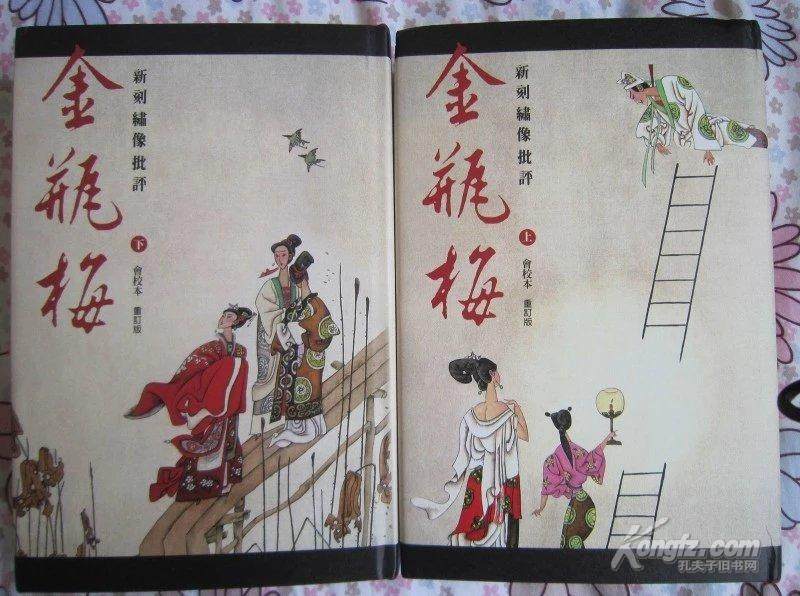 金瓶梅
新刻繡像批評
下
會校本 重訂版
金瓶梅
新刻繡像批評
上
會校本 重訂版
Kongfz.com
孔夫子旧书网